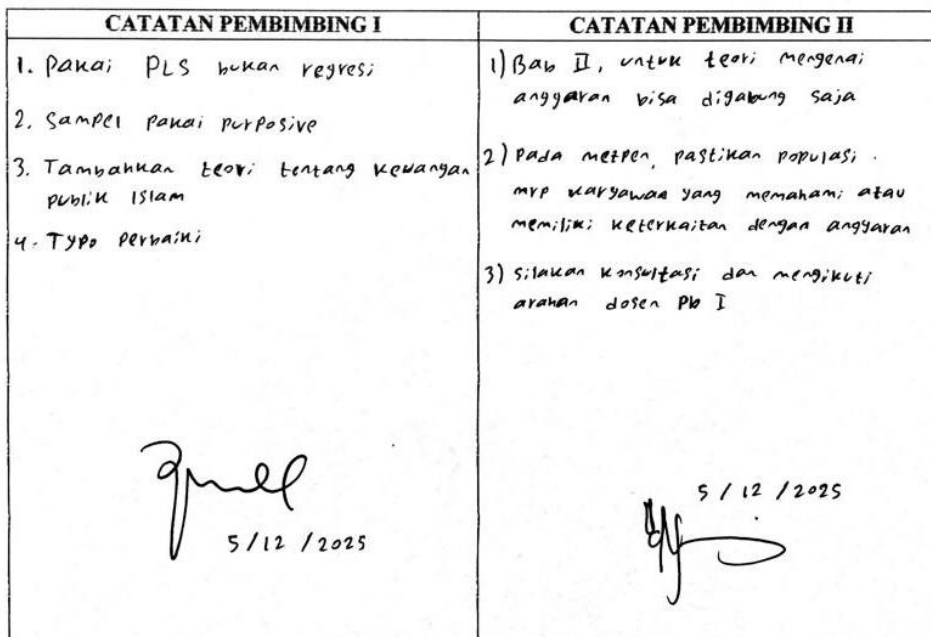 CATATAN PEMBIMBING I
1. Pakai PLS bukan regresi
2. Sampel pakai purposive
3. Tambahkan teori tentang keuangan
publik Islam
4. Typo perbaiki
5/12/2025
CATATAN PEMBIMBING II
1) Bab II, untuk teori mengenai
anggaran bisa digabung saja
2) Pada metpen, pastikan populasi
mrp karyawan yang memahami atau
memiliki keterkaitan dengan anggaran
3) Silakan konsultasi dan mengikuti
arahan dosen Pb I
5/12/2025